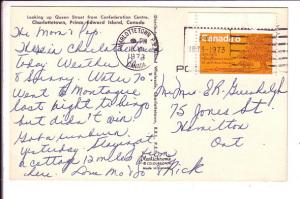 Looking up Queen Street from Confederation Centre.
Charlottetown, Prince Edward Island, Canada
CHARLOTTETOWN
PM
1973
CANADA
Canada
1873-1973
Hi Mom & Pop,
Here in Charlottetown
today. Weather
& Sunny. Water 70°
Went to Montague
last night to bingo
but didn't win
Got a sunburn
yesterday. Staying at
a cottage 12 miles from
here. Love Mo & Jo
Rick
Mr & Mrs. S.R.
75 Jones St.
Hamilton
Ont